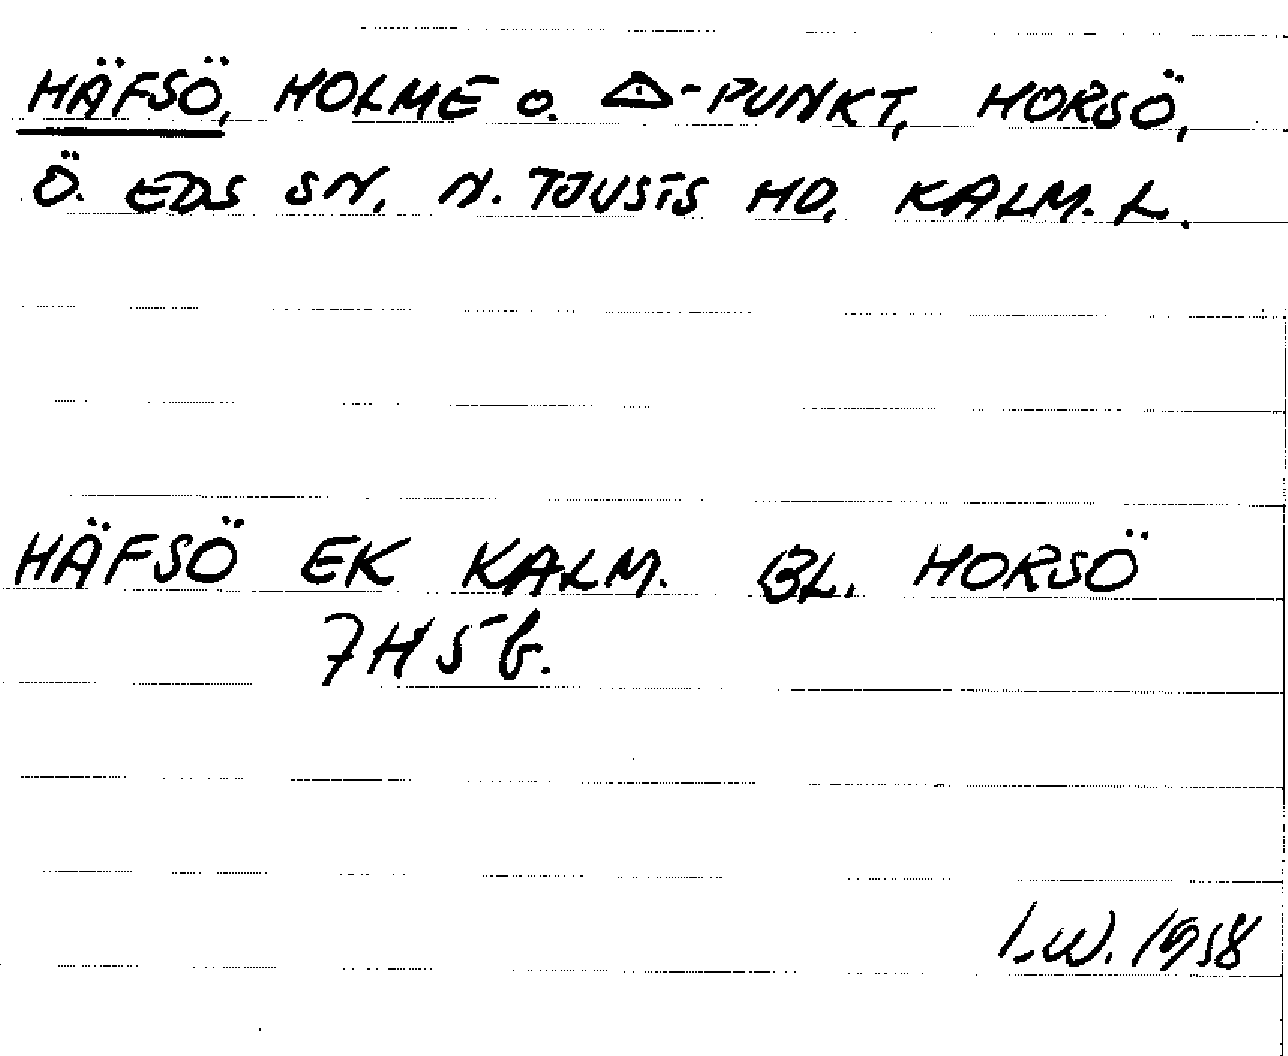 HÄFSÖ, HOLME o. △-PUNKT, HORSÖ,
Ö. EDS SN, N. TJUSTS HD, KALM. L.
HÄFSÖ EK KALM. BL. HORSÖ
7H5b.
I.W. 1958